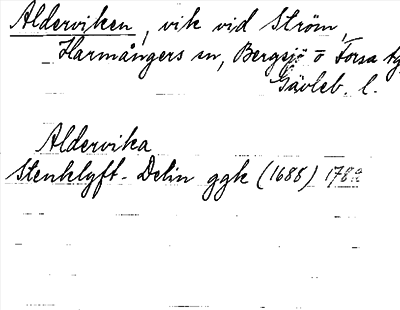 Alderviken, vik vid Ström,
Harmångers sn, Bergsjö o Forsa tg
Gävleb. l.
Aldervika
Stenklyft - Delin ggk (1688) 178